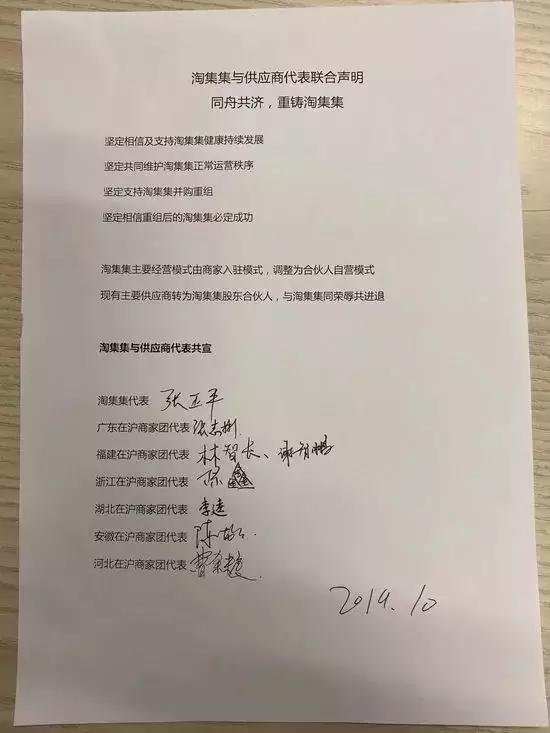 淘集集与供应商代表联合声明
同舟共济，重铸淘集集
坚定相信及支持淘集集健康持续发展
坚定共同维护淘集集正常运营秩序
坚定支持淘集集并购重组
坚定相信重组后的淘集集必定成功
淘集集主要经营模式由商家入驻模式，调整为合伙人自营模式
现有主要供应商转为淘集集股东合伙人，与淘集集同荣辱共进退
淘集集与供应商代表共宣
淘集集代表 张正平
广东在沪商家团代表 张志
福建在沪商家团代表 林智长、谢
浙江在沪商家团代表
湖北在沪商家团代表 李
安徽在沪商家团代表 陈
河北在沪商家团代表 曹
2019.10